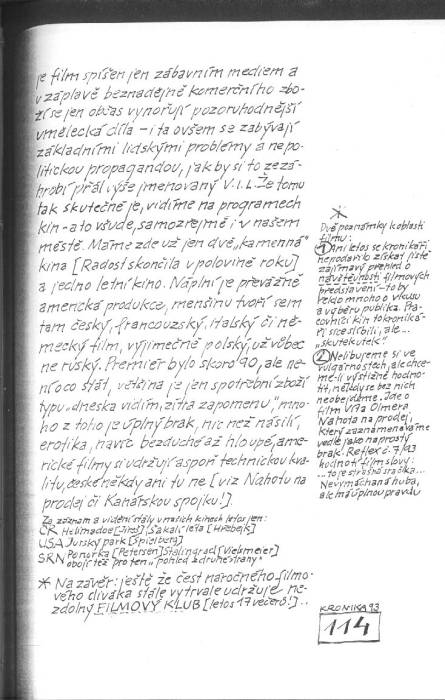 je film spíšen jen zábavním mediem a
v záplavě beznadějně komerčního zbo-
ží se jen občas vynořují pozoruhodnější
umělecká díla – i ta ovšem se zabývají
základními lidskými problémy a nepo-
litickou propagandou, jak by si to zezá-
hrobí přál výše jmenovaný V.I.L. Že tomu
tak skutečně je, vidíme na programech
kin – a to všude, samozřejmě i v našem
městě. Máme zde už jen dvě „kamenná"
kina [Radost skončila v polovině roku]
a jedno letní kino. Náplní je převážně
americká produkce, menšinu tvoří sem
tam český, francouzský, italský či ně-
mecký film, výjimečně polský, už vůbec
ne ruský. Premiér bylo skoro 90, ale ne-
ní o co stát, většina je jen spotřební zboží
typu „dneska vidím, zítra zapomenu", mno-
ho z toho je úplný brak, nic než násilí,
erotika, navíc bezduché až hloupé, ame-
rické filmy si udržují aspoň technickou kva-
litu, české někdy ani tu ne [viz Nahotu na
prodej či Kanárskou spojku!].
Za záznam a vidění stály v našich kinech letos jen:
ČR Helimadoe [Jireš] Šakalí léta [Hřebejk]
USA Jurský park [Spielberg]
SRN Ponorka [Petersen] Stalingrad [Vilsmeier]
obojí též pro ten „pohled z druhé strany"
* Na závěr: ještě že čest náročného filmo-
vého diváka stále vytrvale udržuje ne-
zdolný FILMOVÝ KLUB [letos 17 večerů!]...
*
Dvě poznámky k oblasti
filmu:
1 Ani letos se kronikáři
nepodařilo získat jistě
zajímavý přehled o
návštěvnosti filmových
představení – to by
řeklo mnoho o vkusu
a výběru publika. Pra-
covníci kin to kroniká-
ři sice slíbili, ale...
„skutek utek"
2 Nelibujeme si ve
vulgárnostech, ale chce-
me-li výstižně hodno-
tit, někdy se bez nich
neobejdeme. Jde o
film Víta Olmera
Nahota na prodej,
který zaznamenáváme
vedle jako naprostý
brak. Reflex č. 7/93
hodnotí film slovy:
... to je strašná sračka...
Nevymáchaná huba,
ale má úplnou pravdu
KRONIKA 93
114